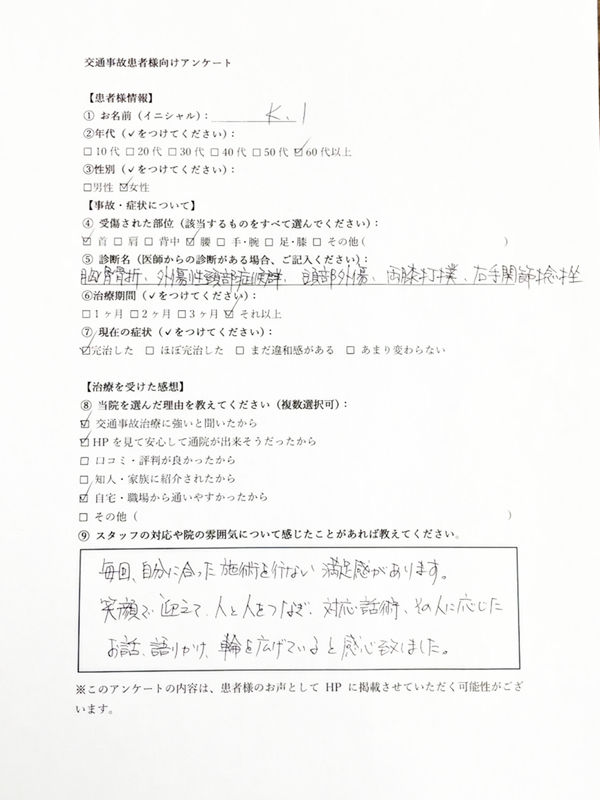 交通事故患者様向けアンケート
【患者様情報】
① お名前（イニシャル）： K. I
②年代（✓をつけてください）：
□10代 □20代 □30代 □40代 □50代 ☑60代以上
③性別（✓をつけてください）：
□男性 ☑女性
【事故・症状について】
④ 受傷された部位（該当するものをすべて選んでください）：
☑ 首 □ 肩 □ 背中 ☑ 腰 □ 手・腕 □ 足・膝 □ その他（ ）
⑤ 診断名（医師からの診断がある場合、ご記入ください）：
胸骨骨折、外傷性頸部症候群、頭部外傷、両膝打撲、右手関節捻挫
⑥治療期間（✓をつけてください）：
□1ヶ月 □2ヶ月 □3ヶ月 ☑ それ以上
⑦ 現在の症状（✓をつけてください）：
☑完治した □ ほぼ完治した □ まだ違和感がある □ あまり変わらない
【治療を受けた感想】
⑧ 当院を選んだ理由を教えてください（複数選択可）：
☑ 交通事故治療に強いと聞いたから
☑HPを見て安心して通院が出来そうだったから
□ 口コミ・評判が良かったから
□ 知人・家族に紹介されたから
☑ 自宅・職場から通いやすかったから
□ その他（ ）
⑨ スタッフの対応や院の雰囲気について感じたことがあれば教えてください。
毎回、自分に合った施術を行ない満足感があります。
笑顔で迎えて、人と人をつなぎ、対応、話術、その人に応じた
お話、語りかけ、輪を広げていると感心致しました。
※このアンケートの内容は、患者様のお声として HP に掲載させていただく可能性がござ
います。